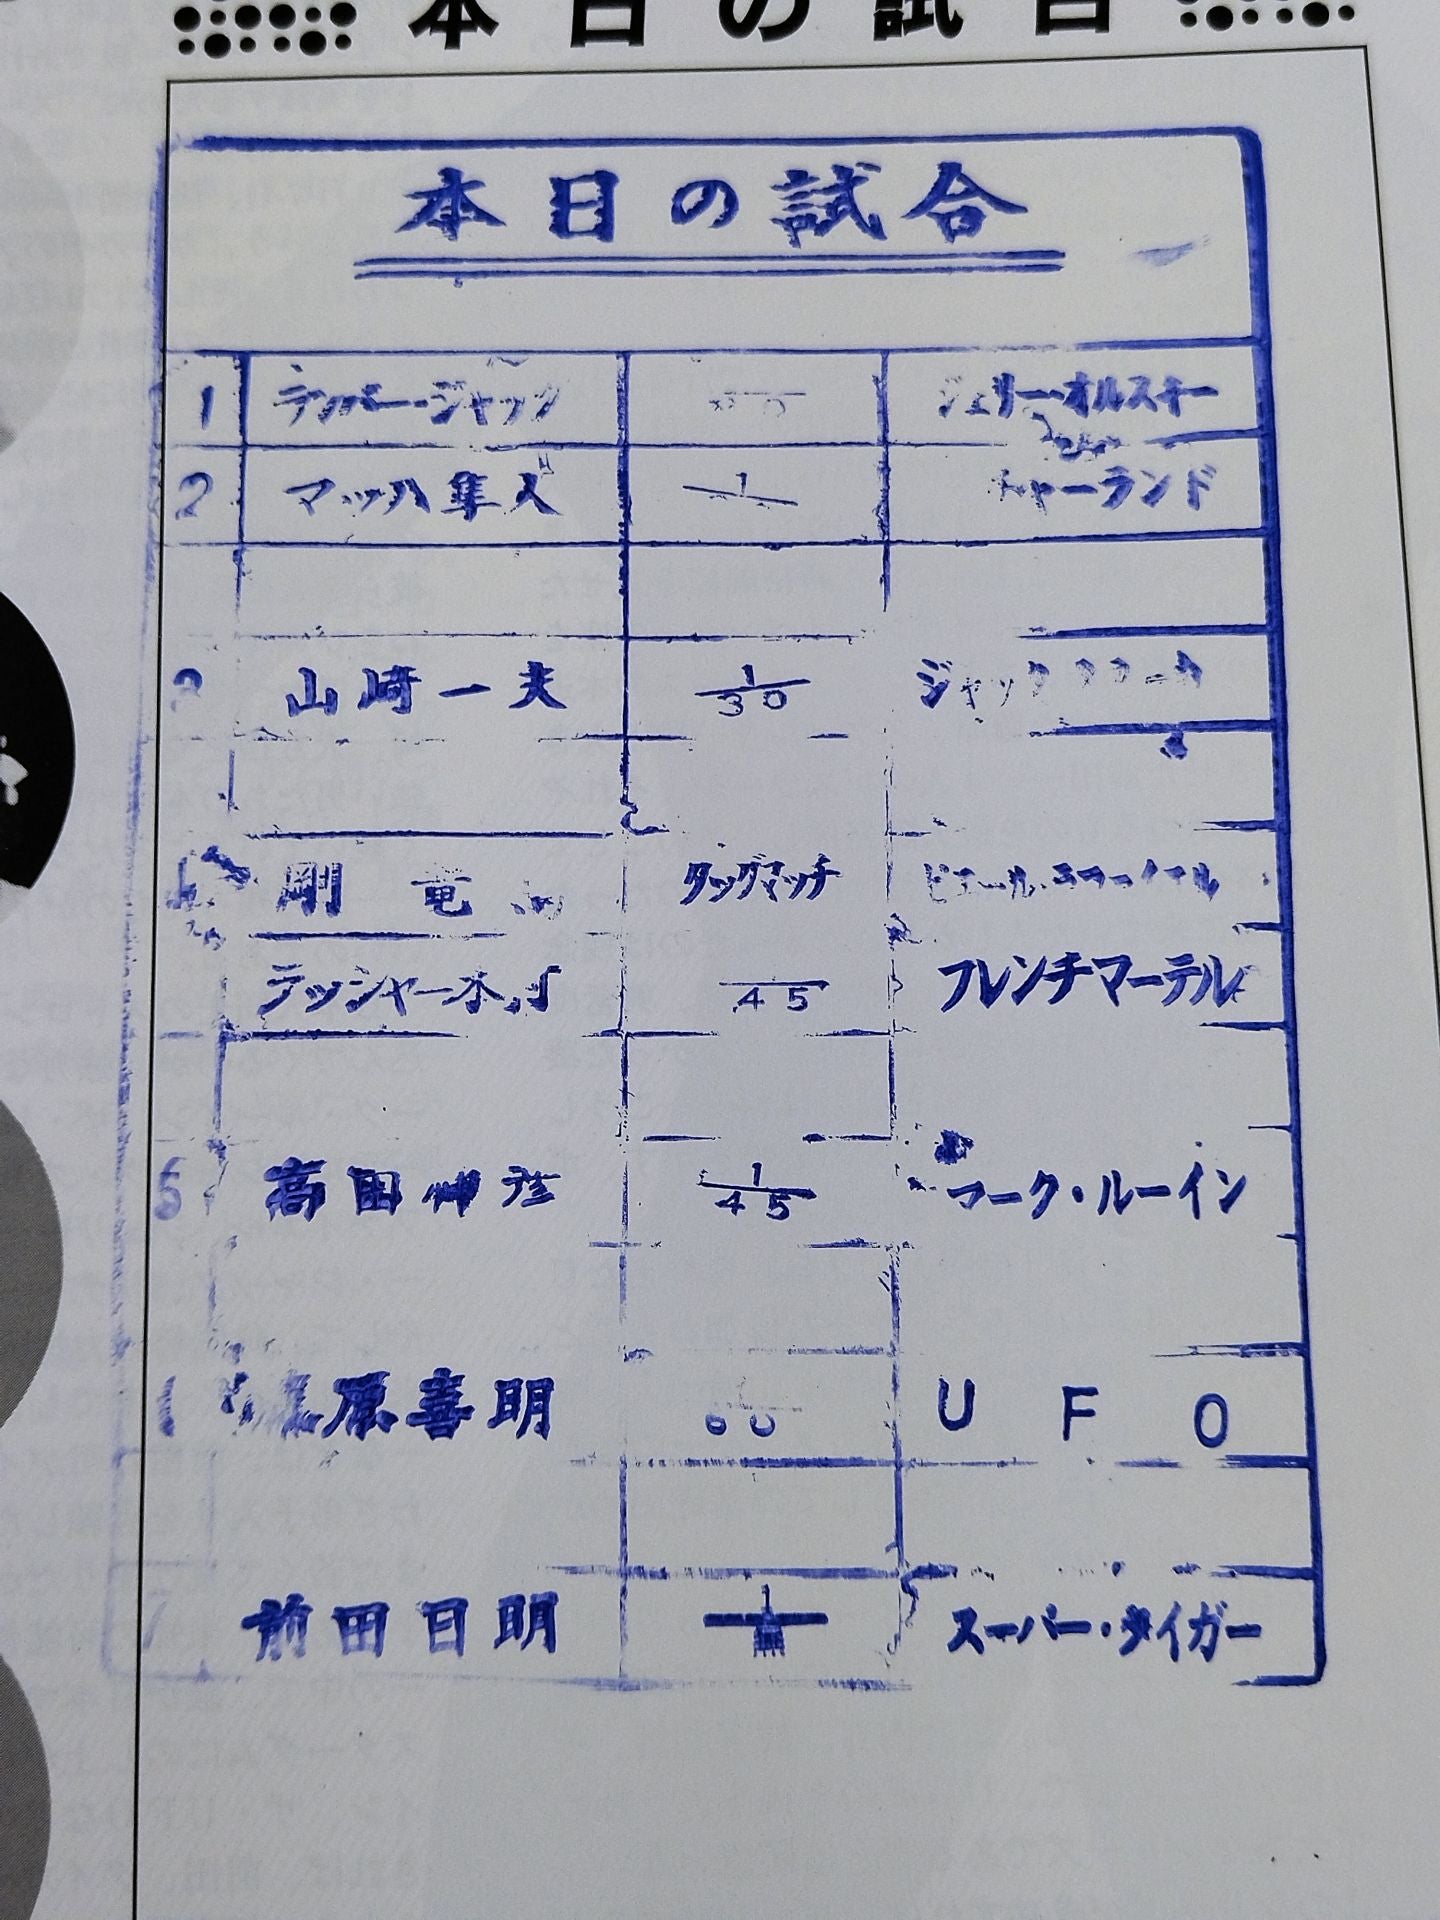 本日の試合
本日の試合
1 ランバー・ジャック ジェリー・オルスキー
2 マッハ隼人 1 チャーランド
3 山崎一夫 1/30 ジャック
剛竜 タッグマッチ ピエール・
ラッシャー木 45 フレンチマーテル
5 高田伸彦 1/45 マーク・ルーイン
原喜明 UFO
7 前田日明 1 スーパー・タイガー